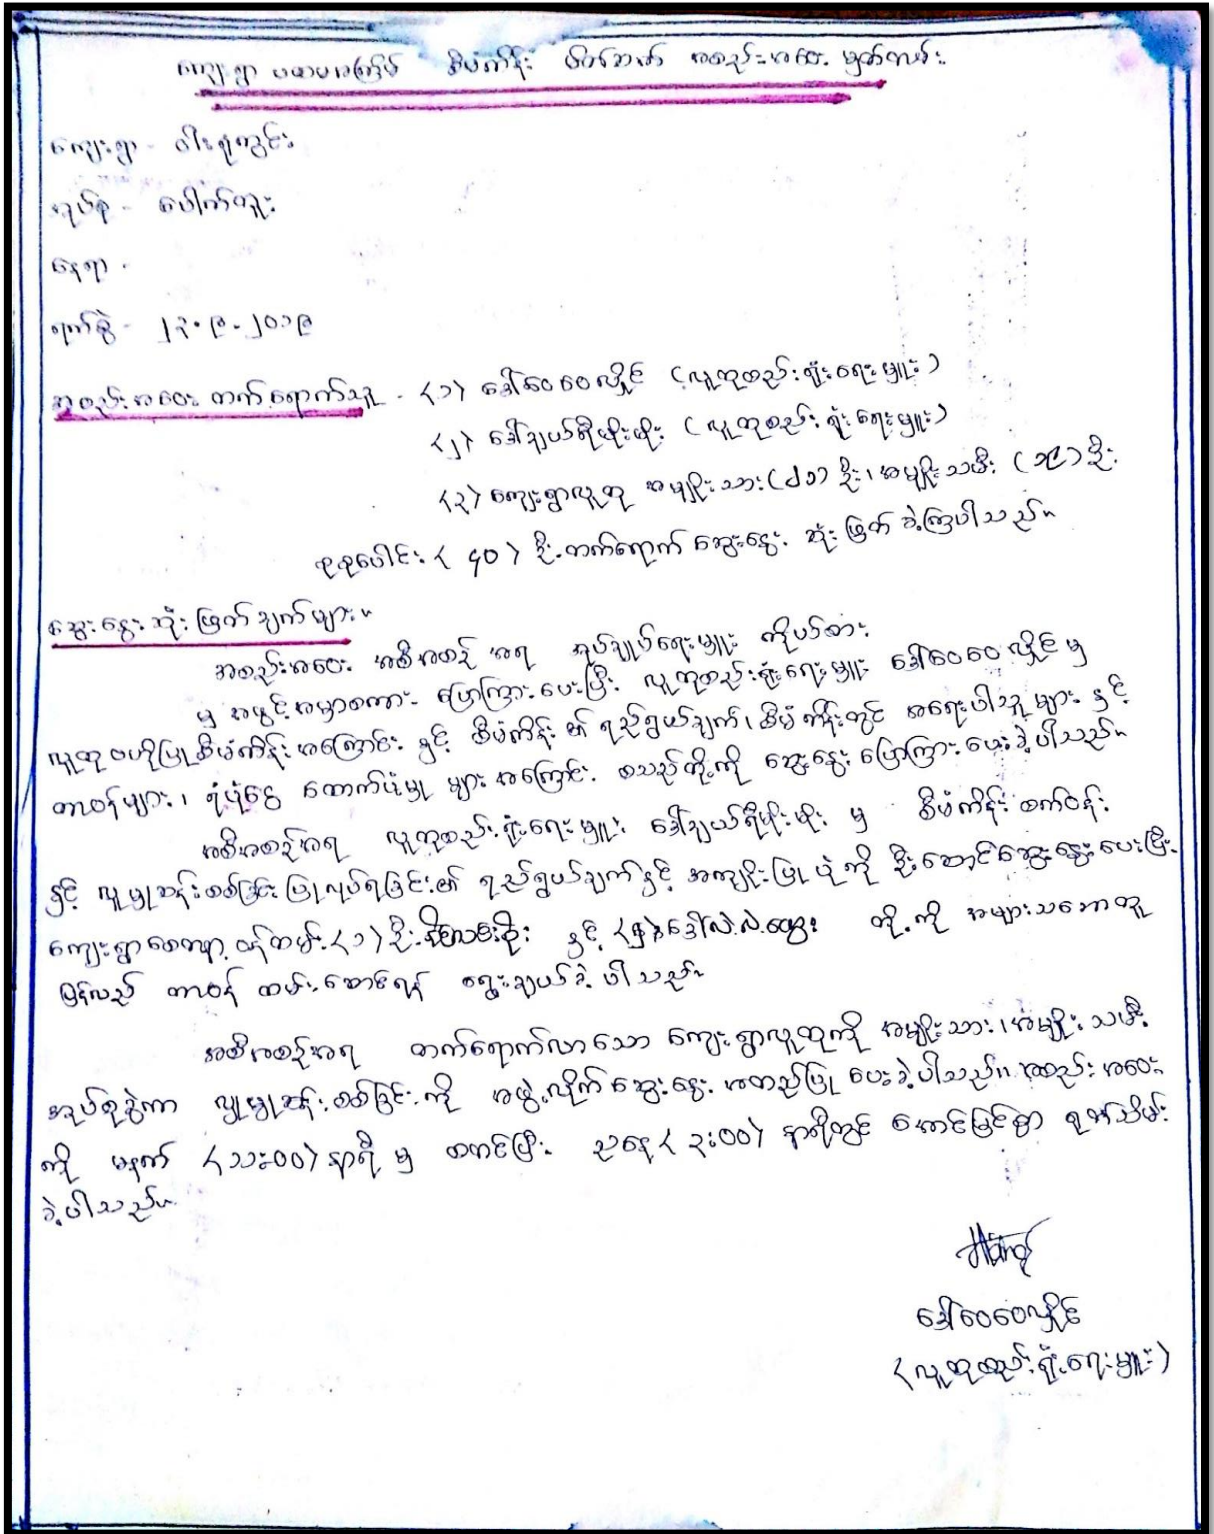 ကျေးရွာ ပထမအကြိမ် စီမံကိန်း မိတ်ဆက် အစည်းအဝေး မှတ်တမ်း
ကျေးရွာ - ဝါးရုံကွင်း
အုပ်စု - ပေါက်တူး
နေရာ -
ရက်စွဲ - ၂၃.၉.၂၀၁၉
အစည်းအဝေး တက်ရောက်သူ - (၁) ဒေါ်ဝေဝေလှိုင် (လူထုစည်းရုံးရေးမှူး)
(၂) ဒေါ်ချယ်ရီမိုးမိုး (လူထုစည်းရုံးရေးမှူး)
(၃) ကျေးရွာလူထု အမျိုးသား (၂၁) ဦး၊ အမျိုးသမီး (၁၉) ဦး
စုစုပေါင်း (၄၀) ဦး တက်ရောက် ဆွေးနွေး ဆုံးဖြတ် ခဲ့ကြပါသည်။
ဆွေးနွေးဆုံးဖြတ်ချက်များ။
အစည်းအဝေး အစီအစဉ် အရ အုပ်ချုပ်ရေးမှူး ကိုယ်စား
မှ အဖွင့်အမှာစကား ပြောကြားပေးပြီး လူထုစည်းရုံးရေးမှူး ဒေါ်ဝေဝေလှိုင် မှ
လူထုဗဟိုပြုစီမံကိန်းအကြောင်း နှင့် စီမံကိန်း၏ ရည်ရွယ်ချက်၊ စီမံကိန်းတွင် အရေးပါသူများ နှင့်
တာဝန်များ၊ ရံပုံငွေ ထောက်ပံ့မှု များအကြောင်း စသည်တို့ကို ဆွေးနွေးပြောကြားပေးခဲ့ပါသည်။
အစီအစဉ်အရ လူထုစည်းရုံးရေးမှူး ဒေါ်ချယ်ရီမိုးမိုး မှ စီမံကိန်းစက်ဝန်း
နှင့် လူမှုဆန်းစစ်ခြင်းပြုလုပ်ရခြင်း၏ ရည်ရွယ်ချက်နှင့် အကျိုးပြုပုံကို ဦးဆောင်ဆွေးနွေးပေးပြီး
ကျေးရွာစေတနာ့ဝန်ထမ်း (၁) ဦး နှင့် ဒေါ်လဲ့လဲ့ထွေး တို့ကို အများသဘောတူ
ပြန်လည် တာဝန် ထမ်းဆောင်ရန် ရွေးချယ်ခဲ့ပါသည်။
အစီအစဉ်အရ တက်ရောက်လာသော ကျေးရွာလူထုကို အမျိုးသား၊ အမျိုးသမီး
အုပ်စုခွဲကာ လူမှုဆန်းစစ်ခြင်းကို အဖွဲ့လိုက်ဆွေးနွေး အတည်ပြု ပေးခဲ့ပါသည်။ အစည်းအဝေး
ကို မနက် (၁၁:၀၀) နာရီ မှ စတင်ပြီး ညနေ (၃:၀၀) နာရီတွင် အောင်မြင်စွာ ရုတ်သိမ်း
ခဲ့ပါသည်။
ဒေါ်ဝေဝေလှိုင်
(လူထုစည်းရုံးရေးမှူး)